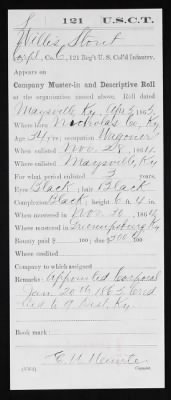 S 121 U.S.C.T.
Willis Stout
Corpl, Co. C, 121 Reg't U. S. Col'd Infantry.
Appears on
Company Muster-in and Descriptive Roll
of the organization named above. Roll dated
Maysville, Ky
Where born Nicholas Co, Ky
Age 34 y'rs; occupation Wagoner
When enlisted Nov. 28, 1864
Where enlisted Maysville, Ky
For what period enlisted 3 years.
Eyes Black; hair Black
Complexion Black; height 6 ft. 4 in.
When mustered in Nov. 30, 1864
Where mustered in Greenupsburg, Ky
Bounty paid $ 100; due $ 300 100
Where credited
Company to which assigned
Remarks: Appointed Corporal
Jan. 20th 1865. Cred
ited to 9 Dist. Ky
Book mark:
(336d) Copyist.